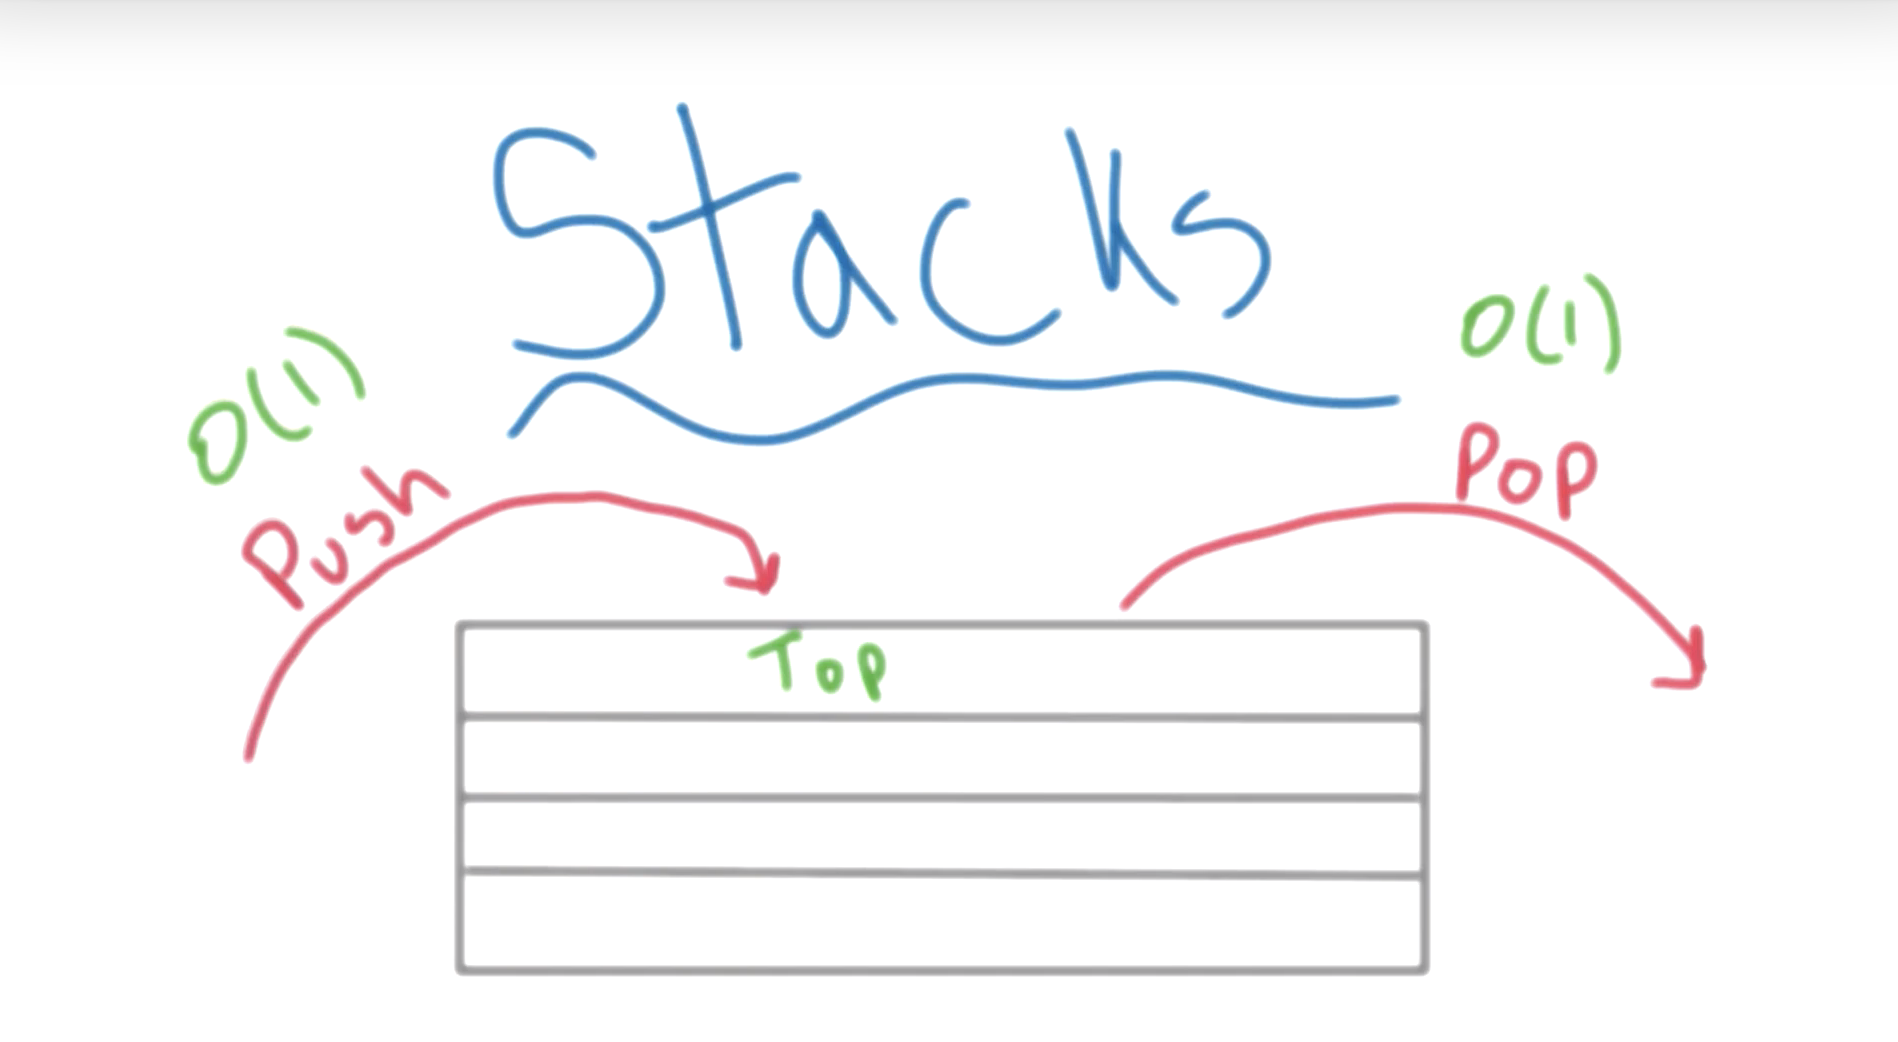 Stacks
O(1)
O(1)
Push
Pop
Top